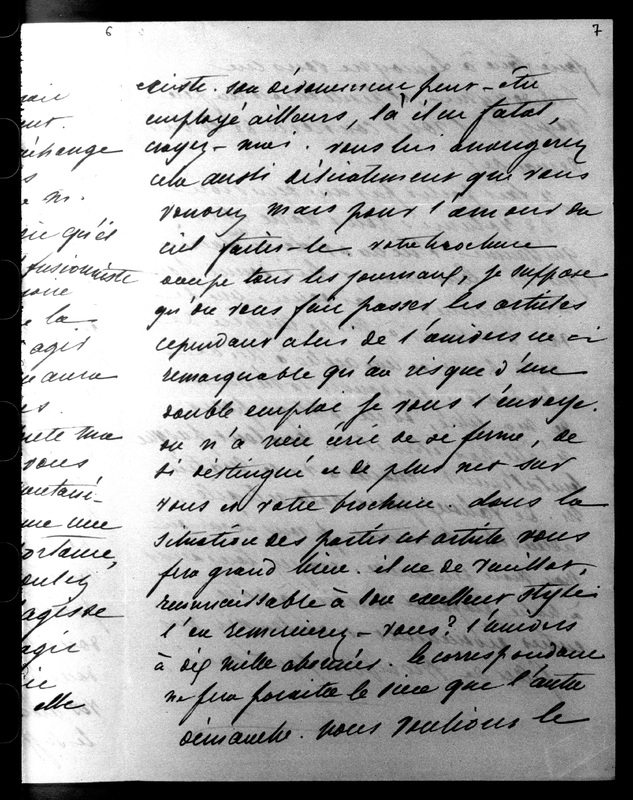 6
7
existe. son dévouement peut-être
employé ailleurs, là il est fatal,
croyez-moi. vous lui arrangerez
cela aussi délicatement que vous
voudrez mais pour l'amour du
ciel faites-le. votre brochure
occupe tous les journaux, je suppose
qu'on vous fait passer les articles
cependant celui de l'univers est si
remarquable qu'au risque d'un
double emploi je vous l'envoye.
on n'a rien écrit de si ferme, de
si distingué et de plus net sur
vous et votre brochure. dans la
situation des partis cet article vous
fera grand bien. il est de Veuillot,
reconnaissable à son excellent style
l'en remercierez-vous? l'univers
à dix mille abonnés. le correspondant
ne fera paraître le sien que l'autre
dimanche. nous voulions le
aie
ent.
échange
s
e m.
ie qu'il
fusionniste
la
agit
aura
es.
ma
vous
me une
ortante,
agisse
agir
ie
elle